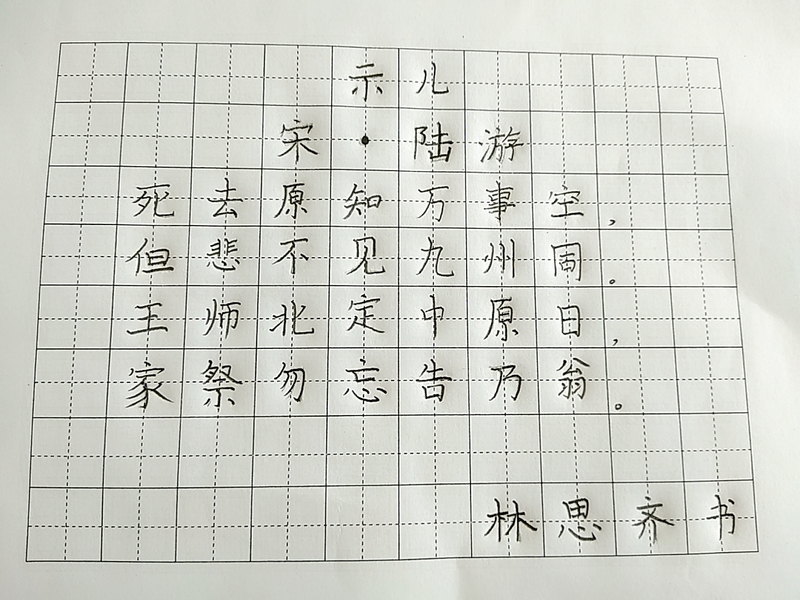 示儿
宋·陆游
死去原知万事空，
但悲不见九州同。
王师北定中原日，
家祭勿忘告乃翁。
林思齐书